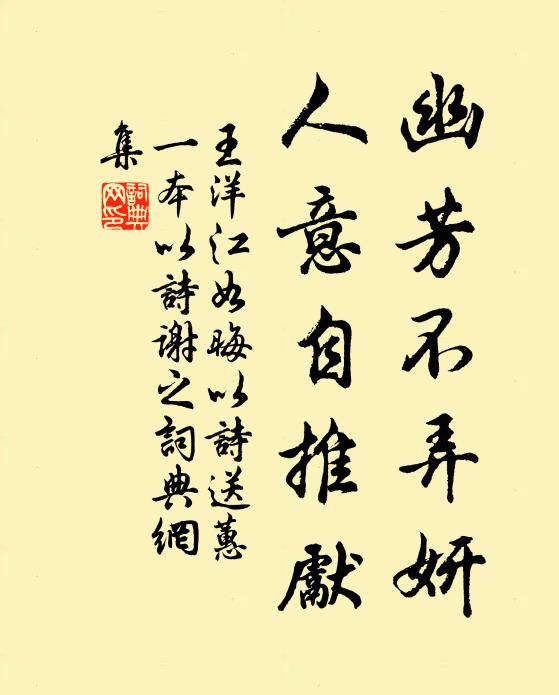 幽芳不弄妍
人意自推獻
王洋江如晦以詩送蕙
一本以詩謝之詞典網
集
詞典
網印